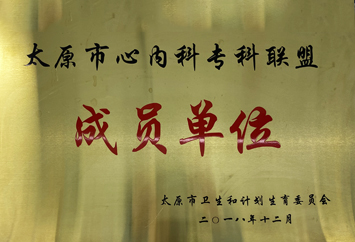 太原市心内科专科联盟
成员单位
太原市卫生和计划生育委员会
二〇一八年十二月